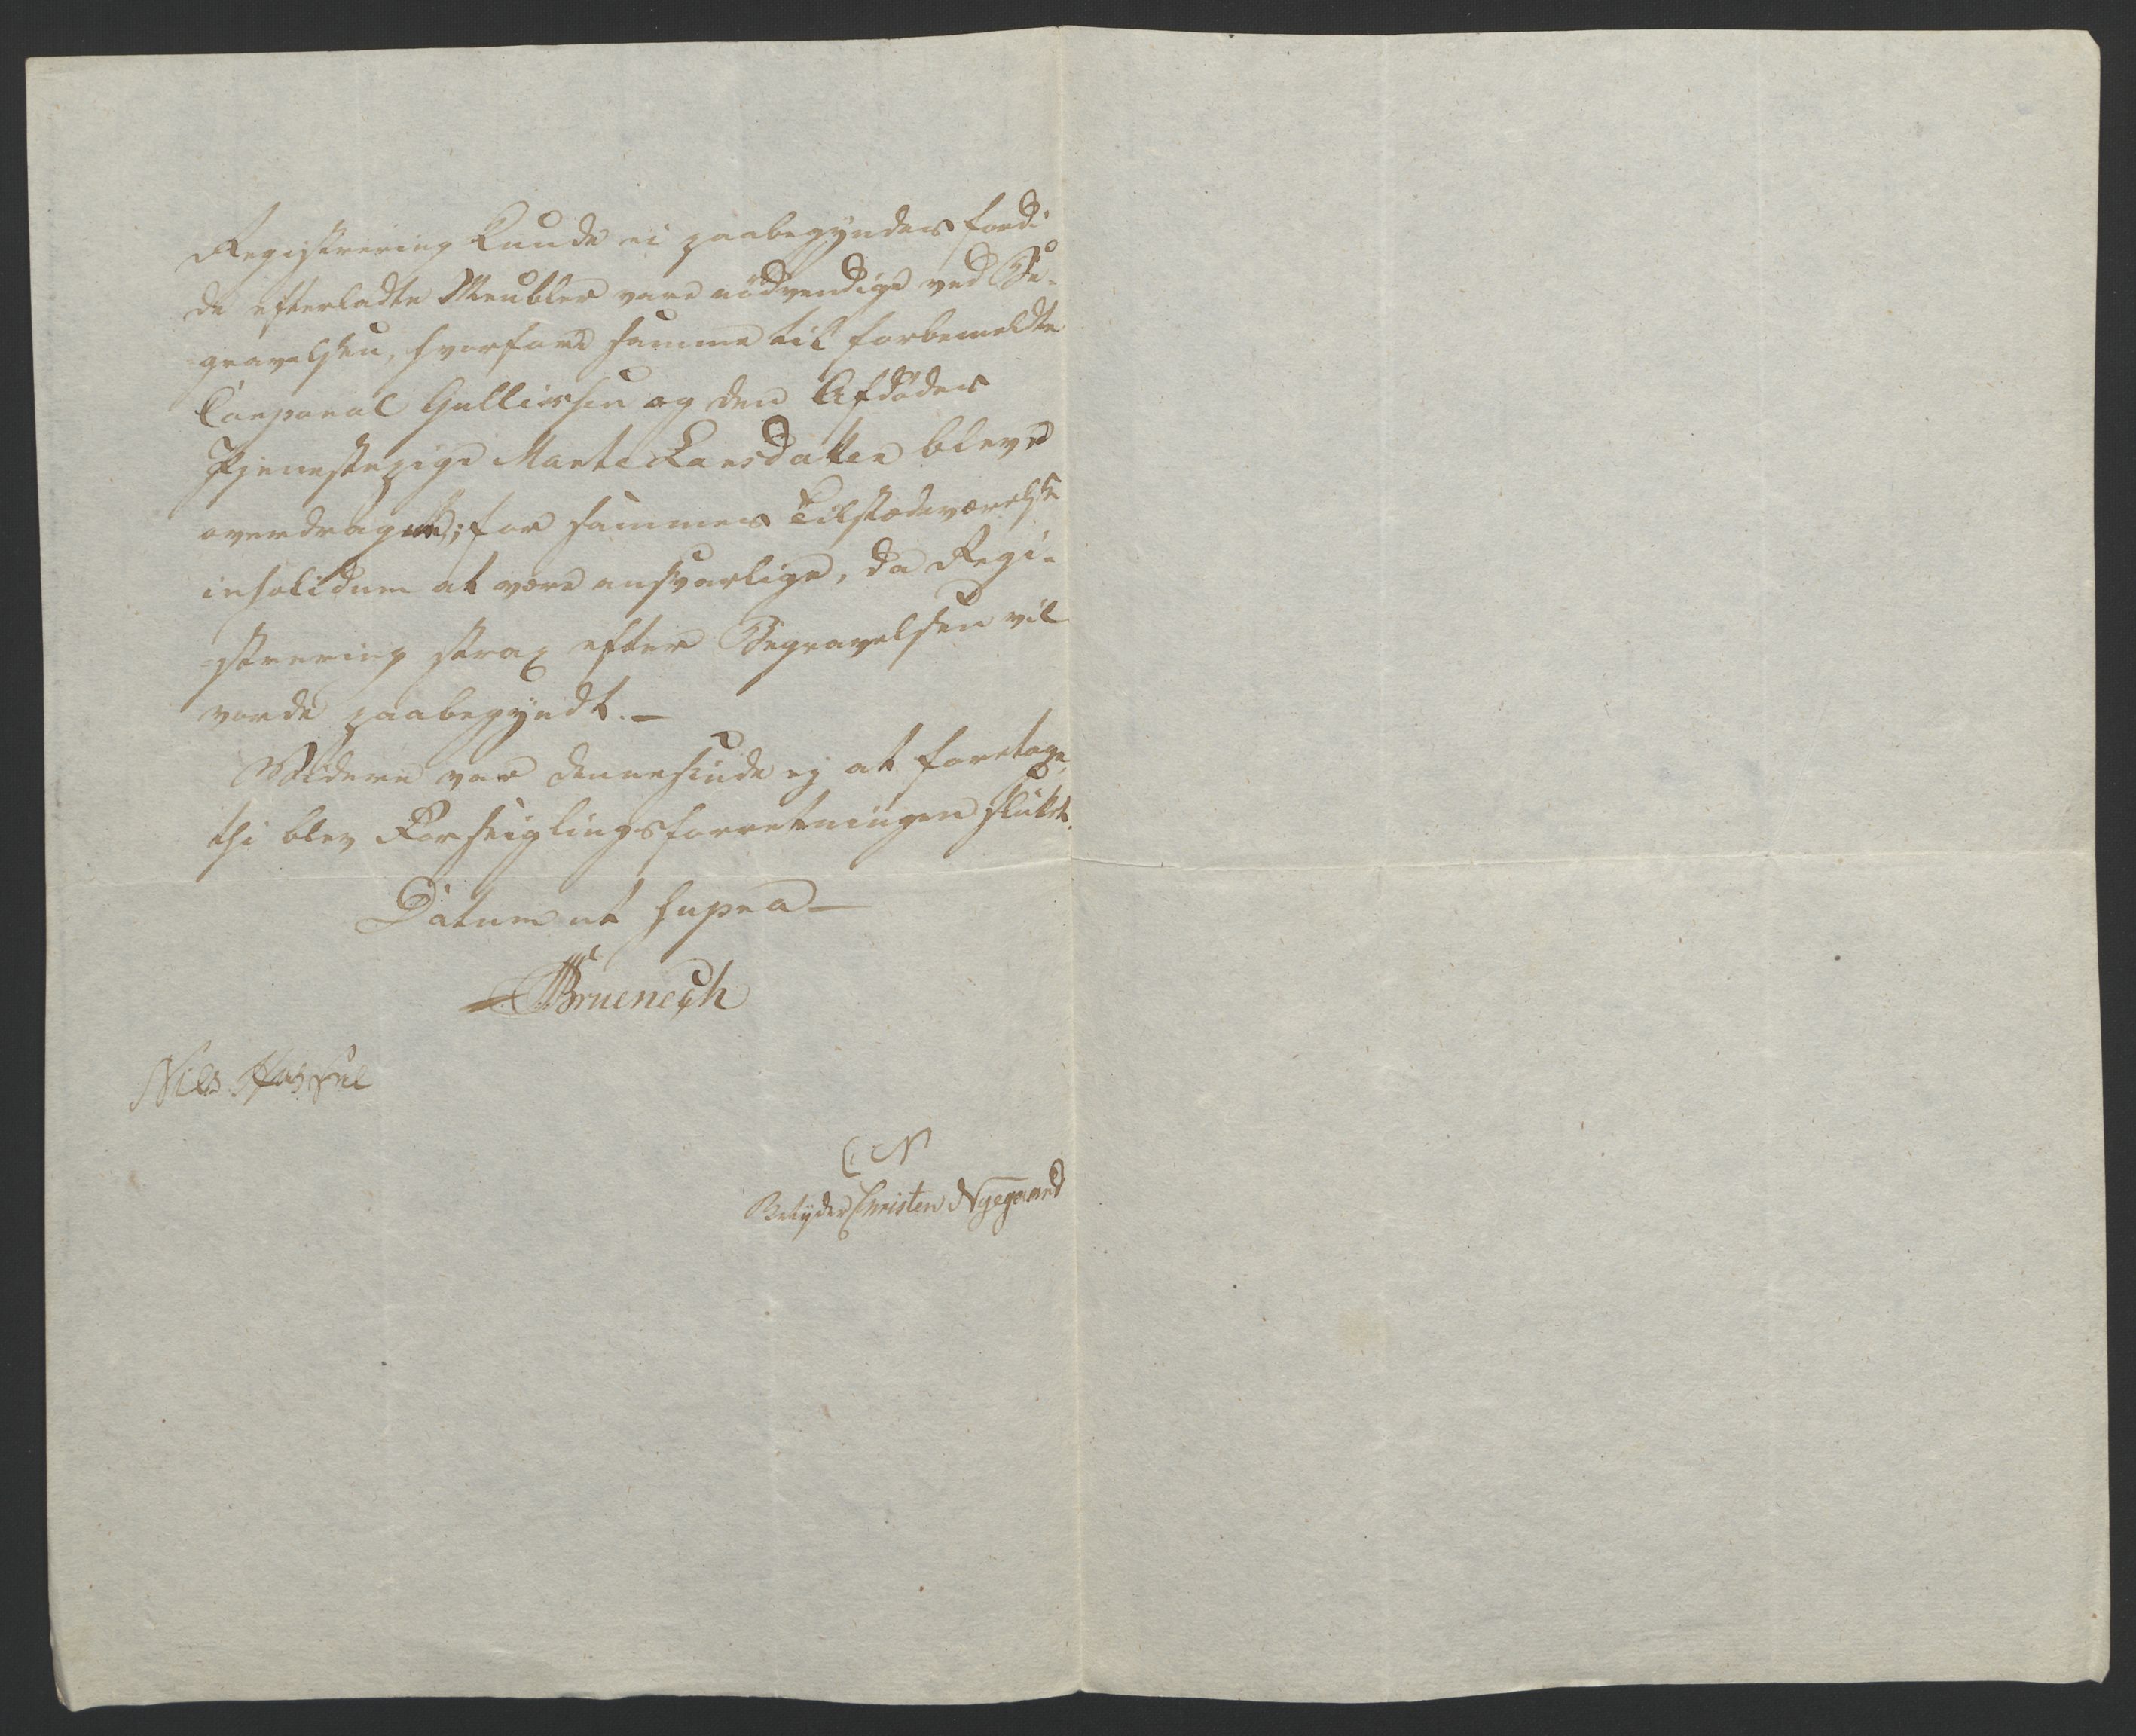 Registrering kunde ei paabegyndes fordi
de efterladte Meubler vare nødvendige ved Be-
gravelsen, hvorfore samme til forbemeldte
Corporal Gulliesen og den Afdødes
Tjenestepige Marte Larsdatter bleve
overdragne; for sammes Tilstædeværelse
insolidum at være ansvarlige, da Regi-
strering strax efter Begravelsen vil
vorde paabegyndt. —
Videre var dennesinde ej at foretage,
thi blev Forseiglingsforretningen sluttet.
Datum ut supra —
Bruenech
Niels
C. N
Betyder Christen Nyegaard